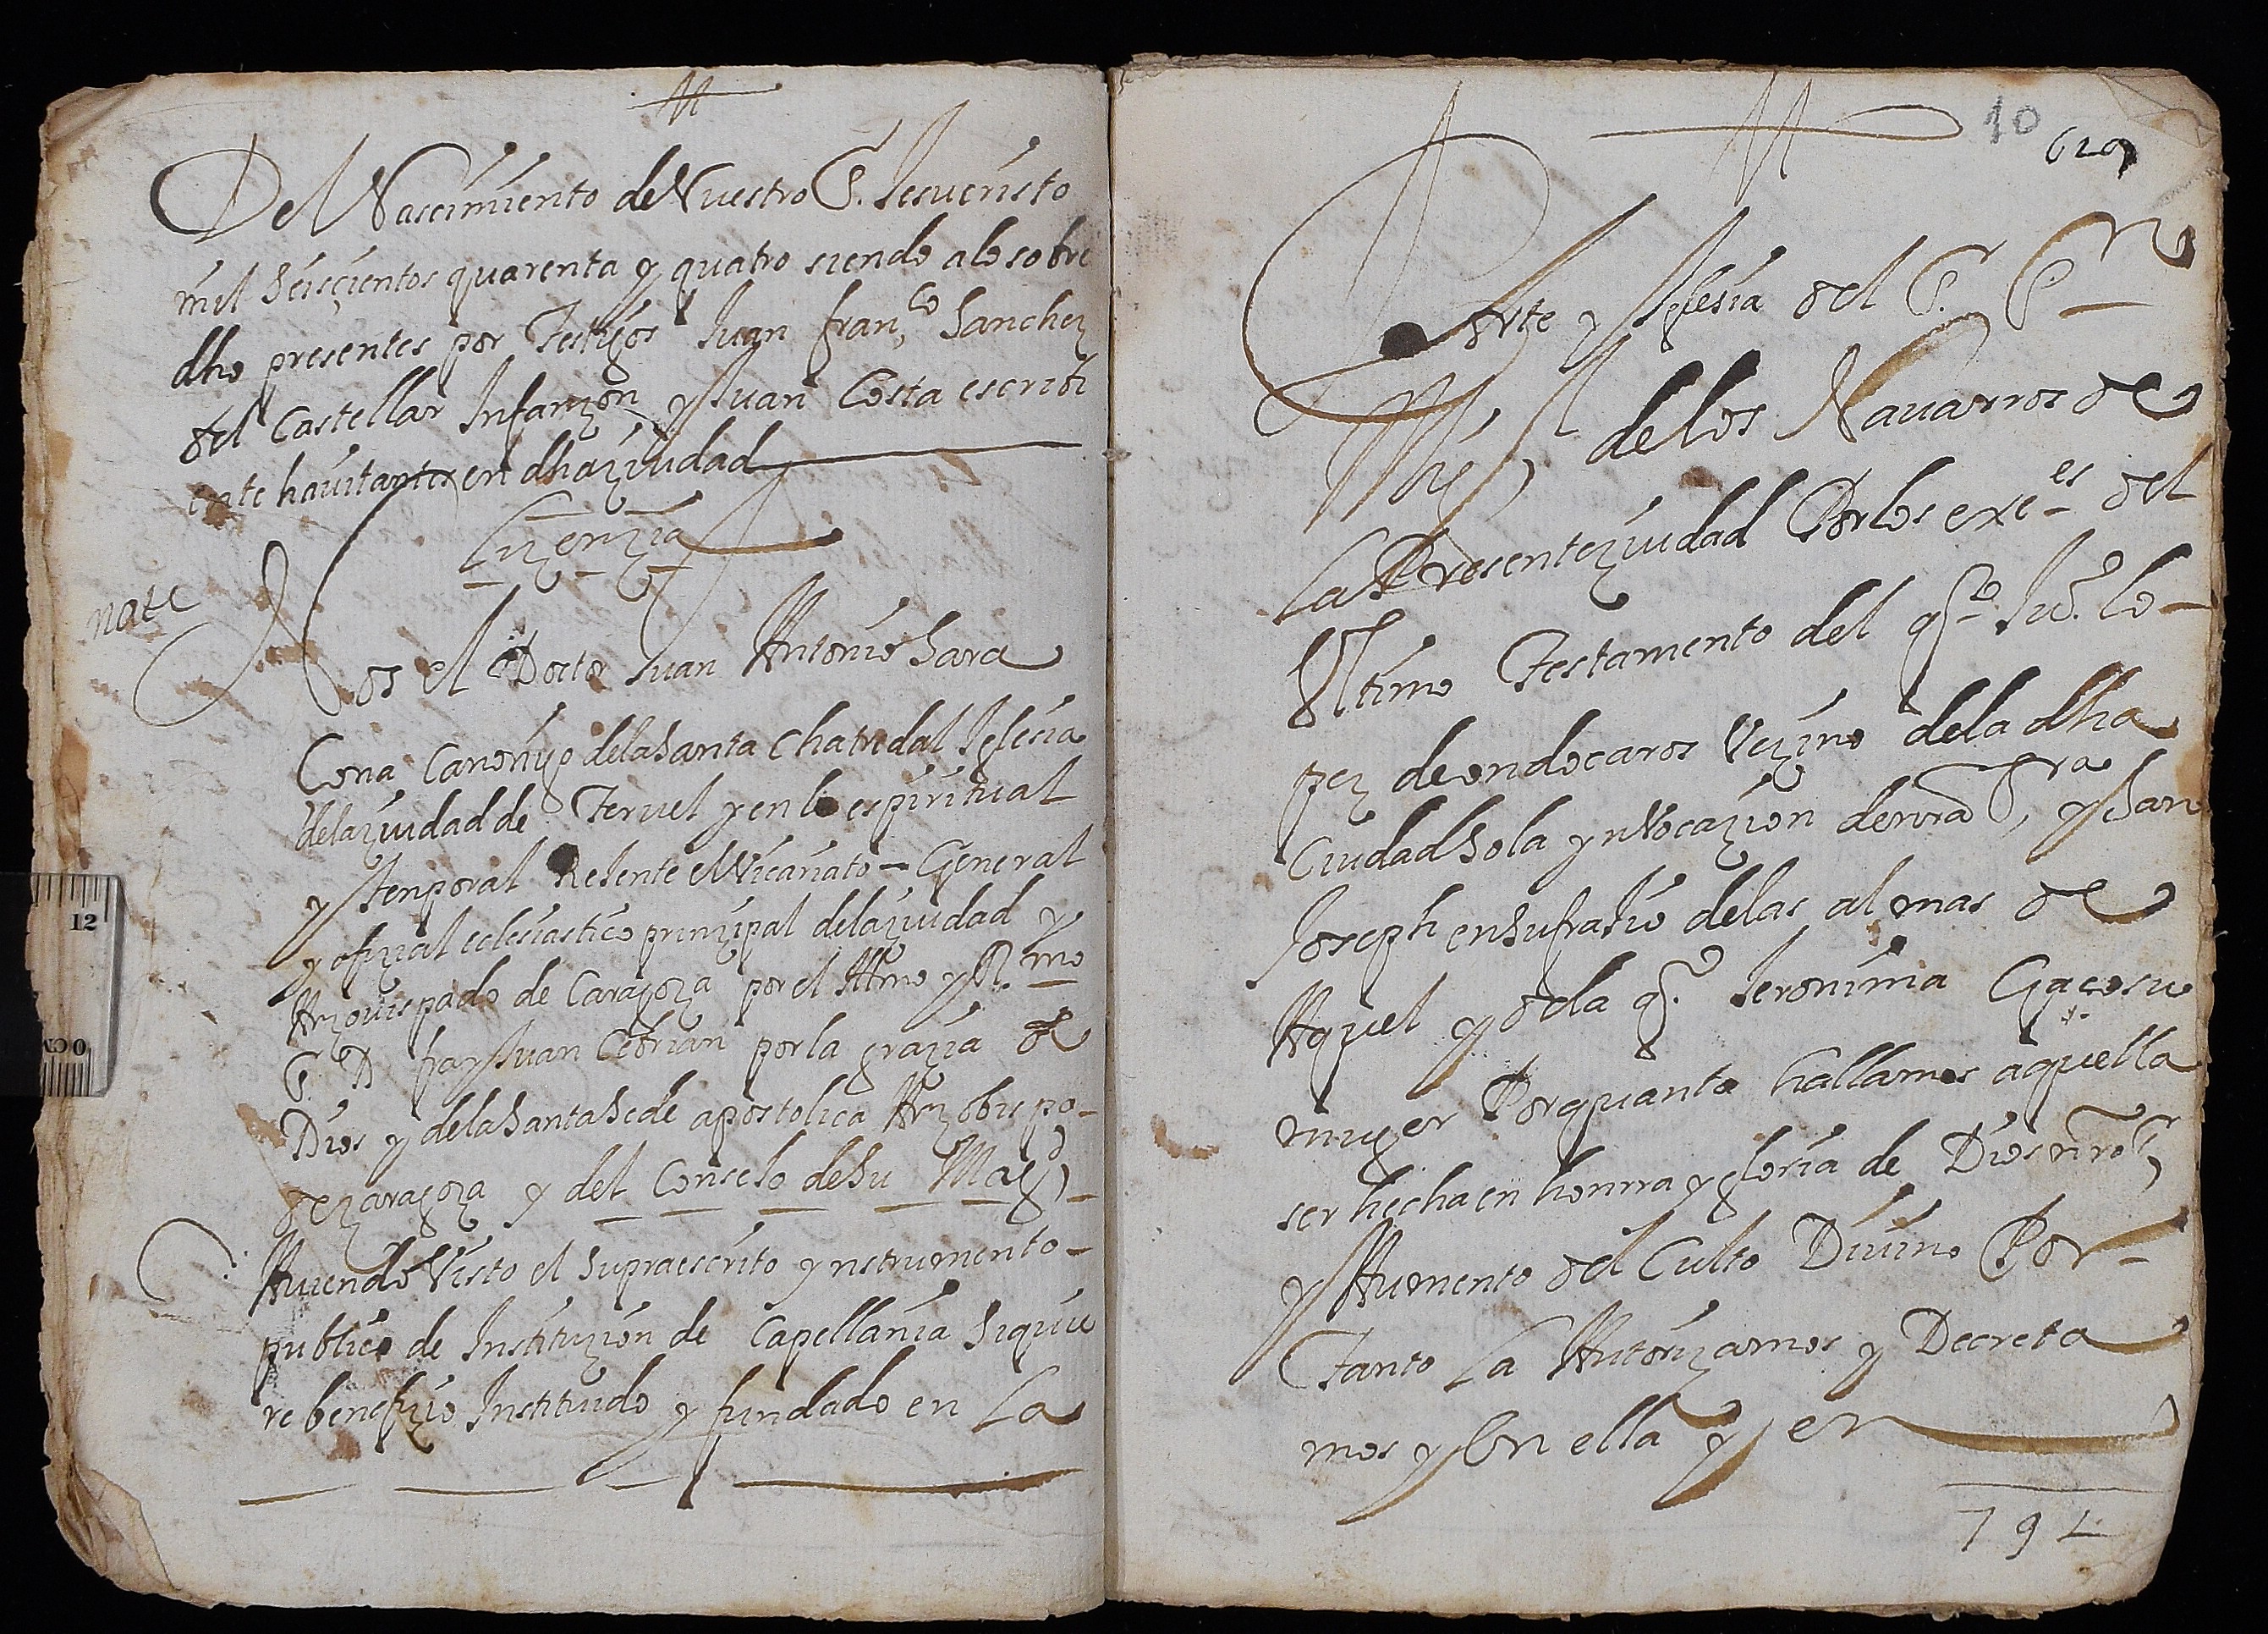 Del Nascimiento de Nuestro S. Jesucristo
mil Seisçientos quarenta y quatro siendo a lo sobre
dho presentes por Testigos Juan fran,co Sanchez
del Castellar Infanzon y Juan Costa escribi
ente hauitantes en dha ziudad
Lizenzia
nate
Nos el Doctor Juan Antonio Sara
Cona Canonigo de la Santa Chatredal Iglesia
de la ziudad de Teruel y en lo espiritual
y tenporal Regente el Vicariato General
y ofizial eclesiastico prinzipal de la ziudad y
Arzouispado de Caragoza por el Illmo y R.mo
S. D fray Juan Cebrian por la grazia de
Dios y de la Santa Sede apostolica Arzobispo
de zaragoza y del Conselo de Su Magd
Auiendo Visto el Supraescrito ynstrumento
publico de Instituzion de Capellania Siquie
re benefizio Instituido y fundado en La
10
620
Parte y Iglesia del S. S
de los Nauarros de
La Presente ziudad Por los exe.es del
Ultimo Testamento del qo. Ju.o Lo
pez de ondocaros Vezino de la dha
Ciudad Sola ynVocazion de nra Sra, y San
Joseph en Sufrajio de las almas de
Aquel y de la q.a Jeronima Gaco su
muger Por quanto hallamos aquella
ser hecha en honrra y gloria de Dios nro Sr
y Aumento del Culto Diuino Por
Tanto La Autorizamos y Decreta
mos y en ella y en
791